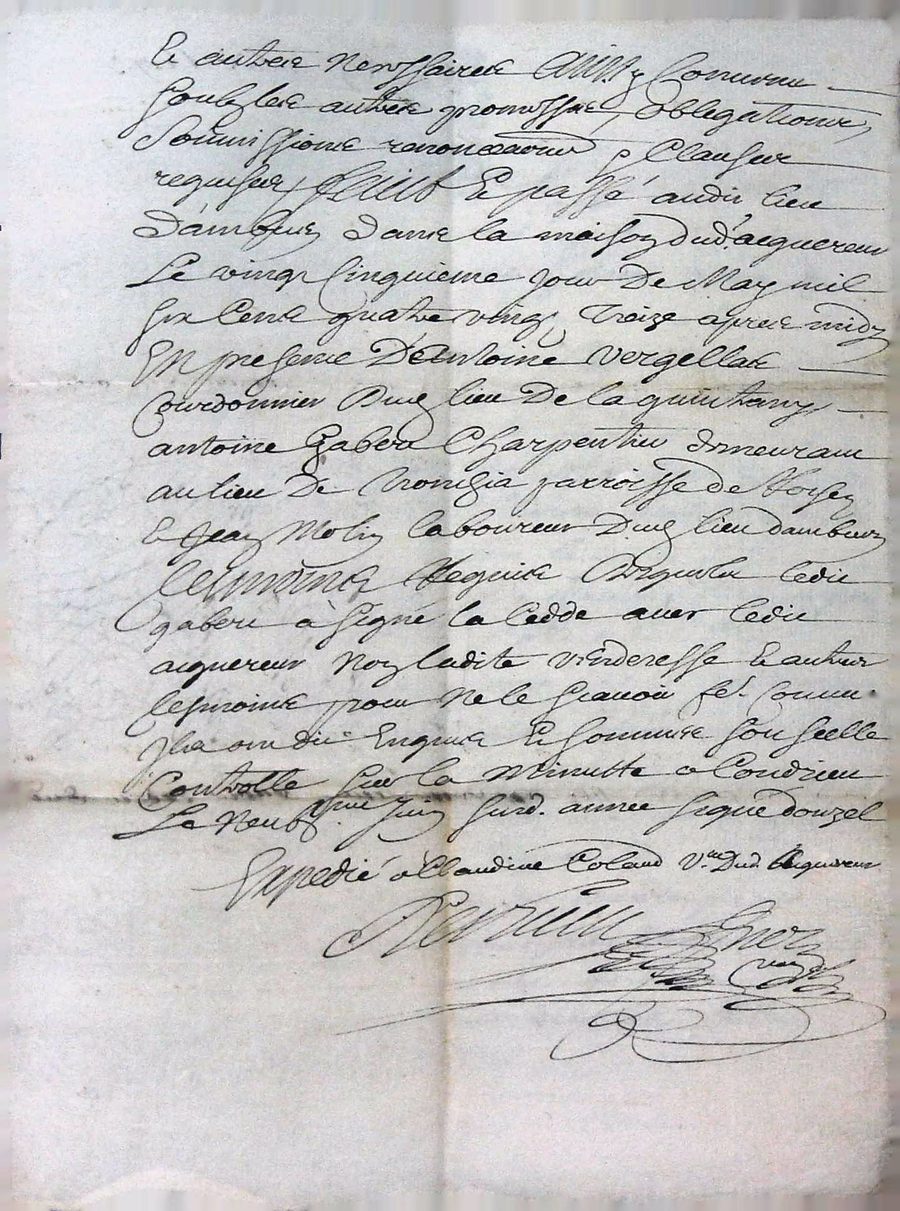 Et autres necessaires ainsy convenu
soubz les autres promesses, obligations,
soumissions renonciations & clauses
requises faict et passé audit lieu
d'ambeus dans la maison dud. acquereur
Le vingt cinquieme jour de May mil
six cens quatre vingt treize apres midy
En presence de Antoine Vergellas
courdonnier du lieu de la quintany
antoine gaberu charpentier demeurant
au lieu de parroisse de
Et Jean Molin laboureur du lieu dambeus
tesmoins requis ledit
gaberu à signé la cedde avec ledit
acquereur non ladite venderesse et autres
tesmoins pour ne le scavoir fe. comme
ilz ont dit enquis et sommés soubscelle
Controllé sur la minutte a Condrieu
Le neufz.me Juin susd. année signé Donzel
Expedié a Claudine Coland v.ve dud. acquereur